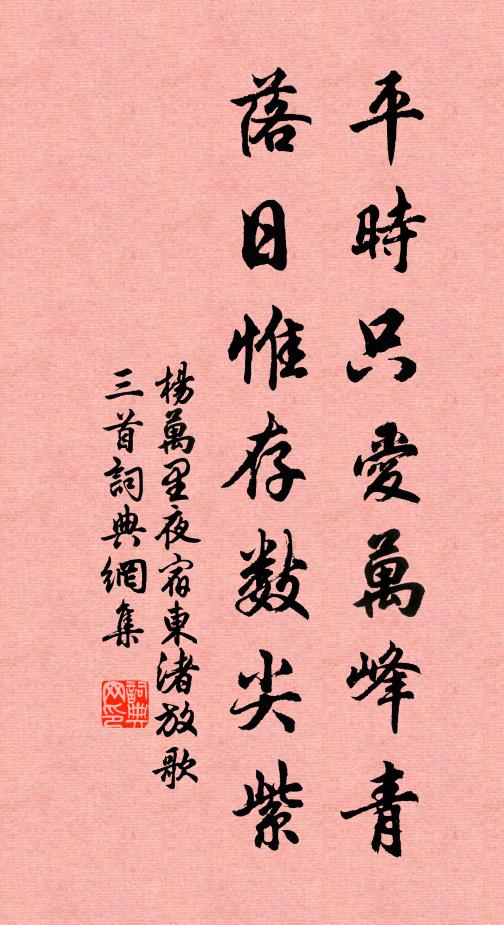 平時只愛萬峰青
落日惟存數尖紫
楊萬里夜宿東渚放歌
三首詞典網集
詞典网印